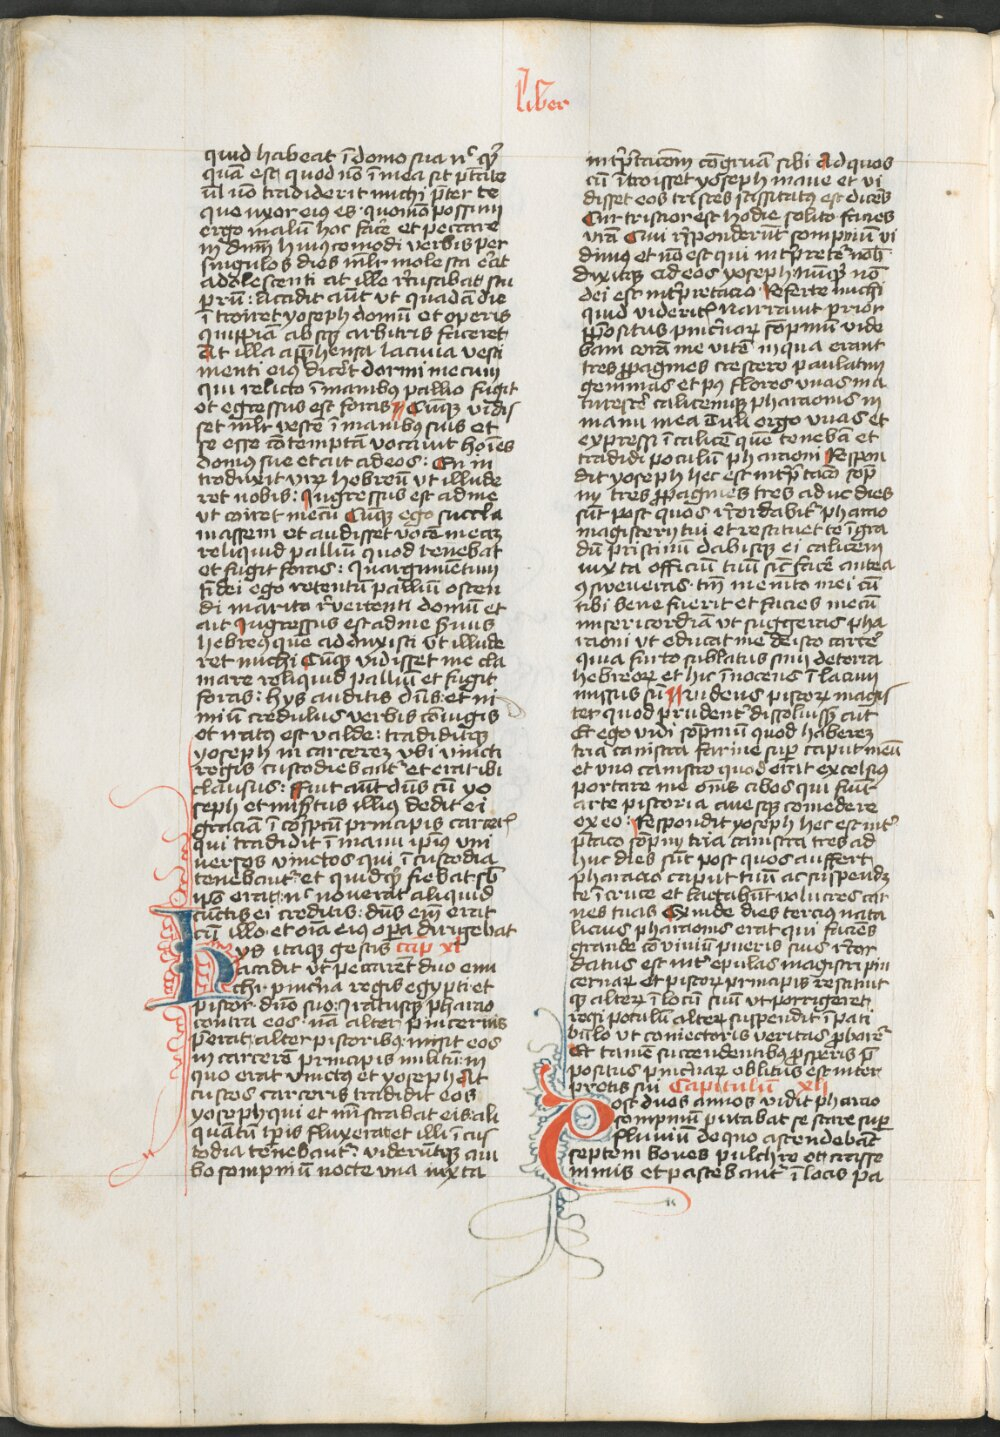 liber
quid habeat ī domo sua nͨ qͥ
quā est qd̛ nō ī mea sit p̄tāte
ūl nō tradiderit michi p̄ter te
que uxor eius es quomō possum
ergo malum hoc facͤ et peccare
in dnm̄ hmͦi cemodi verbis per
singulos dies mlͬr molesta erat
adolescenti at ille r̄cusabat stu
prū : Accidit aūt vt quadā die
ītroiret yoseph domū et operis
quippiā absqꝫ arbitris faceret
At illa app̄hensa lacinia vesti
menti eius dicēt dormi mecum
qui relicto ī manibꝰ pallio fugit
et egressus est foras Cūqꝫ vidis
set mlͬr vestē ī manibꝰ suis et
se esse cōtemptā vocauit hoīes
domus sue et ait ad eos : En in
troduxit virꝫ hebreū ut illude
ret nobis : Ingressus est ad me
vt coiret mecū Cūqꝫ ego succla
massem et audisset vocē meaꝫ
reliquid palliū quod tenebat
et fugit foras : In argumentum
fidei ego retentū palliū osten
di marito r̄vertenti domū et
ait Ingressus est ad me s̄uus
hebreꝰ que adduxisti ut illude
ret michi Cūqꝫ vidisset me cla
mare reliquid palliū et fugit
foras : hys auditis dn̄s et ni
miū credulus verbis cōiugis
et iratꝰ est valde : tradiditqꝫ
yoseph in carcereꝫ vbi vincti
regis custodiebant̛ et erat ibi
clausus : Fuit aūt dn̄s cū yo
seph et mis̄tus illius dedit ei
graciā ī cōspectu principis carceris
qui tradidit ī manu ipius vni
versos vinctos qui ī custodia
tenebant̛ et quidqͥ fiebat sb̄
ipo erat : nͨ noverat aliquid
cūctis ei creditis : dn̄s em̄ erat
cū illo et oīa eiꝰ opa dirigebat
hys itaqꝫ gestis cap xl
Accidit vt peccarēt duo eunu
chi pincͥna regis egypti et
pistor dnō suo : Iratusqꝫ pharao
contra eos nā alter pincernis
p̄erat : alter pistoribꝰ : misit eos
in carcerē principis militū : in
quo erat vinctꝰ et yoseph At
custos carceris tradidit eos
yoseph qui et mīstrabat eis ali
quātū tp̄is fluxerat et illi ī cus
todia tenebant̛ viderūtqꝫ am
bo sompniū nocte vna iuxta
int̛p̄tacōm cōgruā sibi Ad quos
cū ītroisset yoseph mane et vi
disset eos tristes sciscitatꝰ est dicēs
Cur tristior est hodie solito facies
vrā Qui rn̄ponderūt sompniū vi
dimꝰ et nō est qui int̛pretet̛ nob̄
dixitqꝫ ad eos yoseph nūqͥ nō
dei est int̛pretacio Referte michi
quid viderit̛ Narrauit prior
p̄positus pincͥnaꝝ sōpniū vide
bam corā me vitē in qua erant
tres propagines crescere paulatim
gemmas et pꝰ flores vuas ma
turescͤ calicemqꝫ pharaonis in
manu mea Tuli ergo vuas et
expressi ī calicē quē tenebā et
tradidi poculū pharaoni Respon
dit yoseph hec est int̛p̄tacō sōp
nij tres propagines tres adhuc dies
sūt post quos r̄cordabit̛ pharao
magisterij tui et restituet te ī gra
dū pristinū dabisqꝫ ei calicem
iuxta officiū tuū sicͫ facͤ antea
ꝯsueueras tm̄ memēto mei cū
tibi bene fuerit et facies mecū
misericordiā vt suggeras pha
raoni vt educat me de isto carcͤ
quia furto sublatus sum de terra
hebreoꝝ et hic īnocens ī lacum
missus sū Videns pistoꝝ magis
ter quod prudent̛ dissoluissꝫ ait
Et ego vidi sōpniū quod haberez
tria canistra farine supͬ caput meū
et vno canistro quod erat excelsiꝰ
portare me omīs cibos qui fiūt
arte pistoria auesqꝫ comedere
ex eo : Respondit yoseph hec est int̛
p̄tacō sōpnij tria canistra tres ad
huc dies sūt post quos auffert
pharao caput tuū ac suspendꝫ
te ī cruce et lacerabūt volucres car
nes tuas Exinde dies terciꝰ nata
licius pharaonis erat qui faciēs
grande cōviuiū pueris suis r̄cor
datus est int̛ epulas magistri pin
cernaꝝ et pistoꝝ principis restituit
qꝫ alterꝫ ī locū suū vt porrigeret
regi poculū alterꝫ suspendit ī pati
bulo vt coniectoris veritas p̄baret̛
Et tamē succendentibꝰ prosperis p̄
positus pincͥnaꝝ oblitus est inter
pretis sui Capitulū xli
Post duos annos vidit pharao
sompniū putabat se stare supͬ
fluuiū de quo ascendebāt
septem boves pulchre et crasse
nimis et pascebant̛ ī locis pa